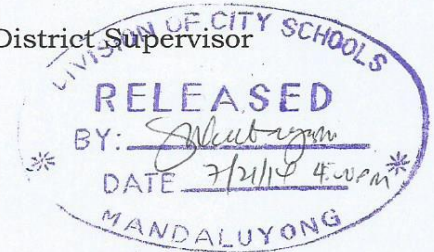 District Supervisor
DIVISION OF CITY SCHOOLS
RELEASED
BY:
DATE 7/21/14
MANDALUYONG